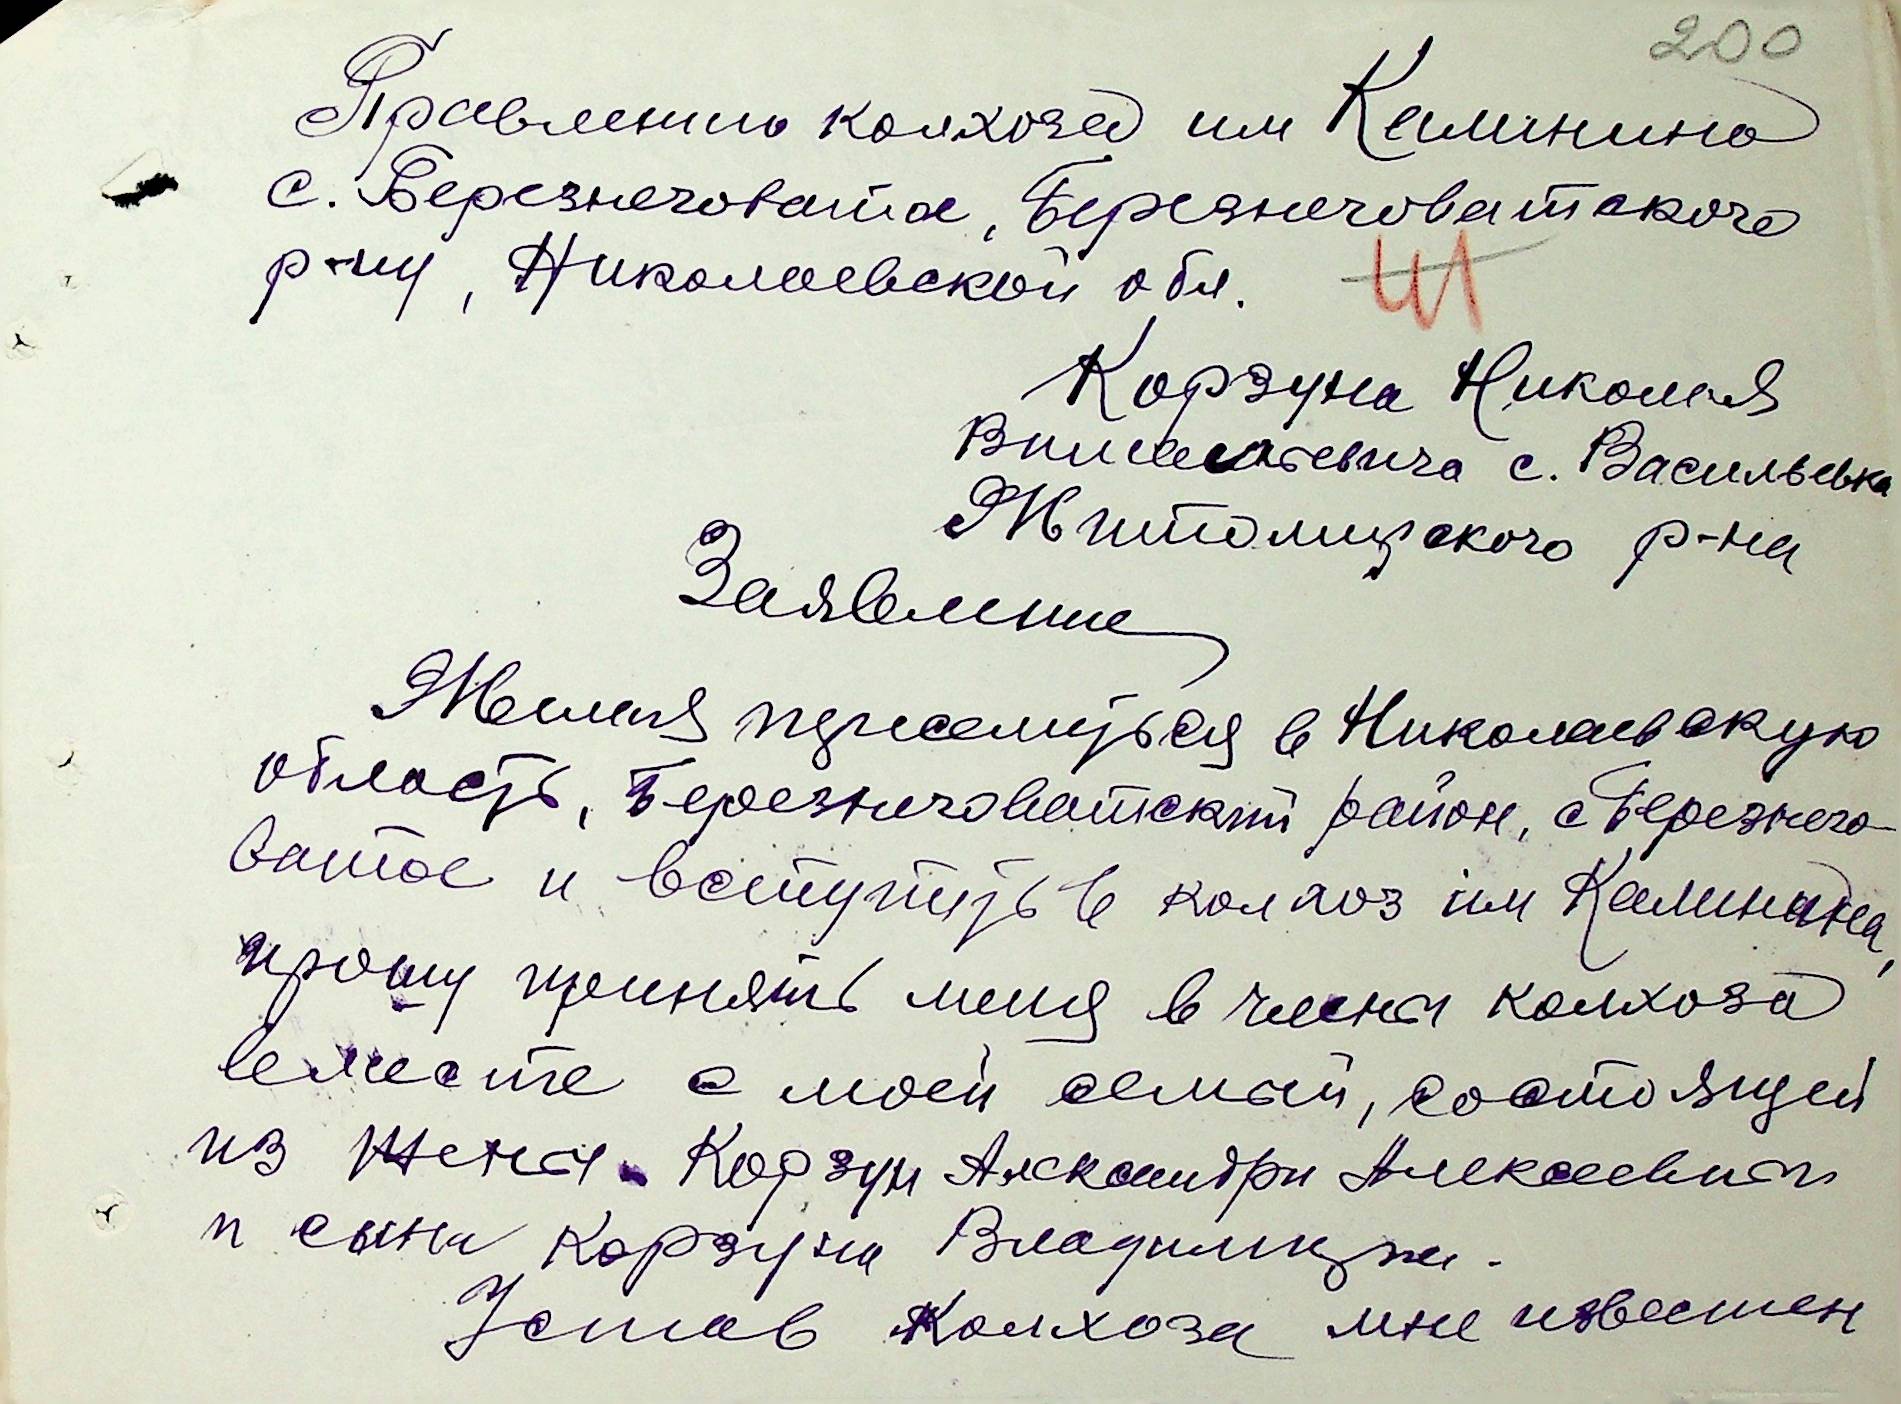 200
Правлению колхоза им Калинина
с. Березнеговатое, Березнеговатского
р-ну, Николаевской обл.
Корзуна Николая
с. Васильевка
Житомирского р-на
Заявление
Желая переселиться в Николаевскую
область, Березнеговатский район, с Березнего-
ватое и вступить в колхоз им Калинина,
прошу принять меня в члены колхоза
вместе с моей семьей, состоящей
из жены Корзун Александры Алексеевны
и сына Корзуна Владимира.
Устав Колхоза мне известен